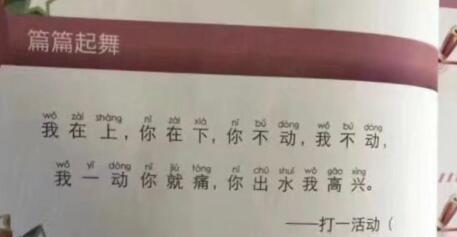 篇篇起舞
wǒ zài shàng nǐ zài xià nǐ bù dòng wǒ bù dòng
我在上,你在下,你不动,我不动,
wǒ yī dòng nǐ jiù tòng nǐ chū shuǐ wǒ gāo xìng
我一动你就痛,你出水我高兴。
——打一活动(